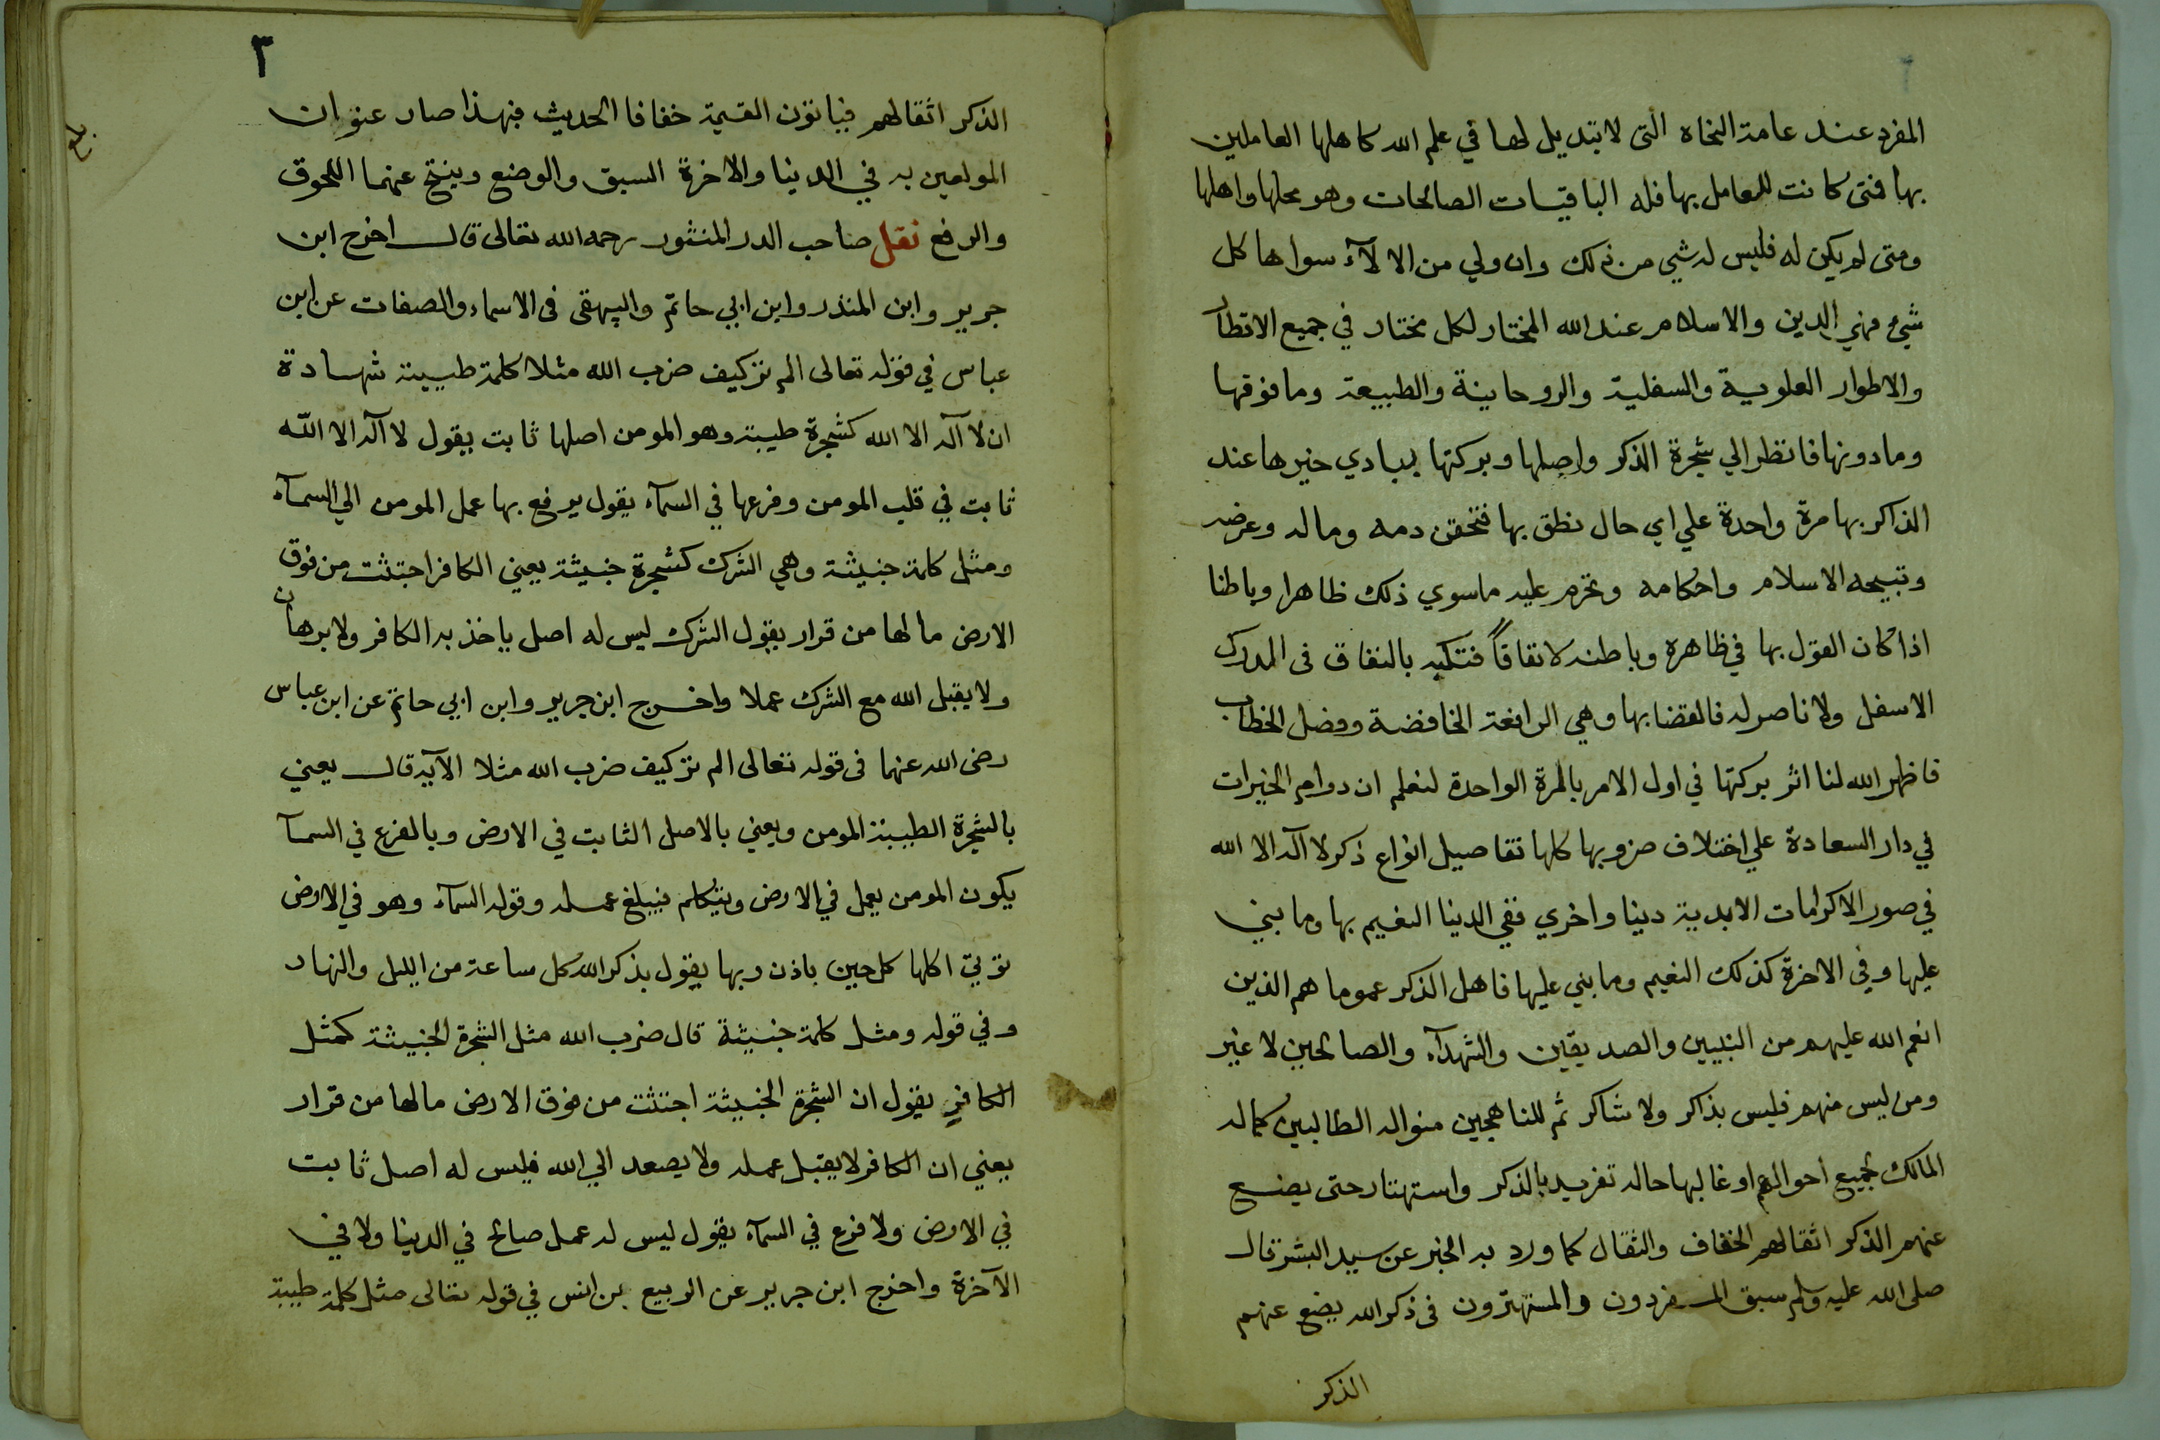 المفرد عند عامة النحاه التى لا تبديل لها في علم الله كاهلها العاملين
بها فمتى كانت للعامل بها فله الباقيات الصالحات وهو محلها واهلها
ومتى لم يكن له فليس له شي من ذلك وان ولي من الالآء سواها كل
شيء فهي الدين والاسلام عند الله المختار لكل مختار في جميع الاقطار
والاطوار العلوية والسفلية والروحانية والطبيعة وما فوقها
وما دونها فانظر الي شجرة الذكر واصلها وبركتها ببادي خيرها عند
الذاكر بها مرة واحدة علي اي حال نطق بها فتحقن دمه وماله وعرضه
وتبيحه الاسلام واحكامه وتحرم عليه ما سوي ذلك ظاهرا وباطنا
اذا كان القول بها في ظاهره وباطنه لا نفاقاً فتكبه بالنفاق فى المدرك
الاسفل ولا ناصر له فالقضا بها وهي الرافعة الخافضة وفصل الخطاب
فاظهر الله لنا اثر بركتها في اول الامر بالمرة الواحدة لنعلم ان دوام الخيرات
في دار السعادة علي اختلاف ضروبها كلها تفاصيل انواع ذكر لا اله الا الله
في صور الاكرامات الابدية دينا واخري ففي الدنيا النعيم بها وما بني
عليها وفي الاخرة كذلك النعيم وما بني عليها فاهل الذكر عموما هم الذين
انعم الله عليهم من النبيين والصديقين والشهدآء والصالحين لا غير
ومن ليس منهم فليس بذاكر ولا شاكر ثم للناهجين منواله الطالبين كماله
المالك لجميع احوالهم او غالبها حاله تفريد بالذكر واستهتار حتى يضع
عنهم الذكر اثقالهم الخفاف والثقال كما ورد به الخبر عن سيد البشر قال
صلى الله عليه وسلم سبق المفردون والمستهترون فى ذكر الله يضع عنهم
الذكر
٣
الذكر اثقالهم فياتون القيمة خفافا الحديث فبهذا صار عنوان
المولعين به في الدنيا والاخرة السبق والوضع وينتج عنهما اللحوق
والرفع نقل صاحب الدر المنثور رحمه الله تعالى قال اخرج ابن
جرير وابن المنذر وابن ابي حاتم والبيهقى فى الاسماء والصفات عن ابن
عباس في قوله تعالى الم تر كيف ضرب الله مثلا كلمة طيبة شهادة
ان لا اله الا الله كشجرة طيبة وهو المومن اصلها ثابت يقول لا اله الا الله
ثابت في قلب المومن وفرعها في السمآء يقول يرفع بها عمل المومن الي السمآء
ومثل كلمة خبيثة وهي الشرك كشجرة خبيثة يعني الكافر اجتثت من فوق
الارض ما لها من قرار يقول الشرك ليس له اصل ياخذ به الكافر ولا برهان
ولا يقبل الله مع الشرك عملا واخرج ابن جرير وابن ابي حاتم عن ابن عباس
رضى الله عنهما فى قوله تعالى الم تر كيف ضرب الله مثلا الآية قال يعني
بالشجرة الطيبة المومن ويعني بالاصل الثابت في الارض وبالفرع في السمآ
يكون المومن يعمل في الارض ويتكلم فيبلغ عمله وقوله السمآء وهو في الارض
توتي اكلها كل حين باذن ربها يقول يذكر الله كل ساعة من الليل والنهار
وفي قوله ومثل كلمة خبيثة قال ضرب الله مثل الشجرة الخبيثة كمثل
الكافر يقول ان الشجرة الخبيثة اجتثت من فوق الارض ما لها من قرار
يعني ان الكافر لا يقبل عمله ولا يصعد الي الله فليس له اصل ثابت
في الارض ولا فرع في السمآء يقول ليس له عمل صالح في الدنيا ولا في
الآخرة واخرج ابن جرير عن الربيع بن انس في قوله تعالى مثل كلمة طيبة